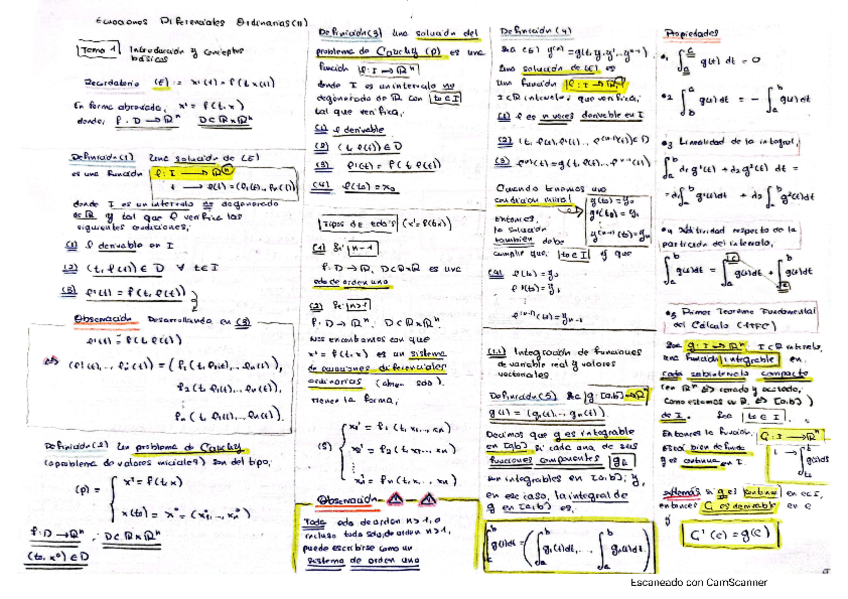 Ecuaciones Diferenciales Ordinarias (II)
Tema 1 Introducción y conceptos
básicos
Recordatorio (E) : x'(t) = f(t, x(t))
En forma abreviada, x' = f(t,x)
donde, f: D → ℝⁿ D⊂ℝxℝⁿ
Definición(1) Una solución de (E)
es una función φ: I → ℝⁿ
t → φ(t) = (φ1(t),.., φn(t))
donde I es un intervalo no degenerado
de ℝ y tal que φ verifica las
siguientes condiciones,
(1) φ derivable en I
(2) (t, φ(t)) ∈ D ∀ t∈I
(3) φ'(t) = f(t, φ(t))
Observación Desarrollando en (3)
φ'(t) = f(t, φ(t))
f2(t, φ1(t),.., φn(t)),
fn(t, φ1(t),.., φn(t))
Definición(2) Un problema de Cauchy
(o problema de valores iniciales) son del tipo,
(P) = { x' = f(t,x)
f: D → ℝⁿ , D⊂ℝxℝⁿ
(t0, x⁰) ∈ D
Definición(3) Una solución del
problema de Cauchy (P) es una
función φ: I → ℝⁿ
donde I es un intervalo no
degenerado de ℝ con t0∈I
tal que verifica,
(1) φ derivable
(2) (t, φ(t)) ∈ D
(3) φ'(t) = f(t, φ(t))
(4) φ(t0) = x0
Tipos de edo's (x' = f(t,x))
(1) Si n=1
f: D → ℝ, D⊂ℝxℝ es una
edo de orden uno
(2) Si n>1
f: D → ℝⁿ, D⊂ℝxℝⁿ
Nos encontramos con que
x' = f(t,x) es un sistema
de ecuaciones diferenciales
ordinarias
Tienen la forma,
x1' = f1(t, x1,.., xn)
(S) x2' = f2(t, x1,.., xn)
⋮
xn' = fn(t, x1,.., xn)
Observación
Toda edo de orden n>1, o
incluso todo sdo, de orden n>1,
puede escribirse como un
sistema de orden uno
Definición(4)
Sea (E) y⁽ⁿ⁾ = g(t, y, y',..., yⁿ⁻¹)
Una solución de (E) es
una función φ: I → ℝ,
I⊂ℝ intervalo, que verifica,
(1) φ es n veces derivable en I
(2) (t, φ(t), φ'(t),.., φ⁽ⁿ⁻¹⁾(t)) ∈ D
(3) φ⁽ⁿ⁾(t) = g(t, φ(t),.., φⁿ⁻¹(t))
Cuando tenemos una
condición inicial
entonces,
la solución
también debe
cumplir que, t0∈I y que
(4) φ(t0) = y0
(1.1) Integración de funciones
de variable real y valores
vectoriales.
Definición(5) Sea g: [a,b] → ℝⁿ
g(t) = (g1(t),.., gn(t))
Decimos que g es integrable
en [a,b] si cada una de sus
funciones componentes
son integrables en [a,b]; y,
en ese caso, la integral de
g en [a,b] es,
∫ₐᵇ g(t)dt = (∫ₐᵇ g1(t)dt,..., ∫ₐᵇ gn(t)dt)
Propiedades
•1 ∫ g(t) dt = 0
•2 ∫ₐᵇ g(t)dt = - ∫ g(t)dt
•3 Linealidad de la integral,
•4 Aditividad respecto de la
partición del intervalo,
•5 Primer Teorema Fundamental
del Cálculo (1TFC)
Sea g: I → ℝⁿ I⊂ℝ intervalo,
una función integrable en
cada subintervalo compacto
de I. Sea t0∈I.
Entonces la función, G: I → ℝⁿ
está bien definida
y es continua en I.
Además si g es continua en c∈I,
entonces G es derivable en c
y
G'(c) = g(c)
Escaneado con CamScanner